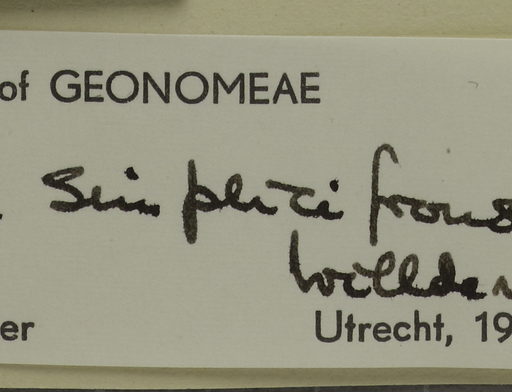 of GEONOMEAE
. simplicifrons
Willden
er
Utrecht, 19